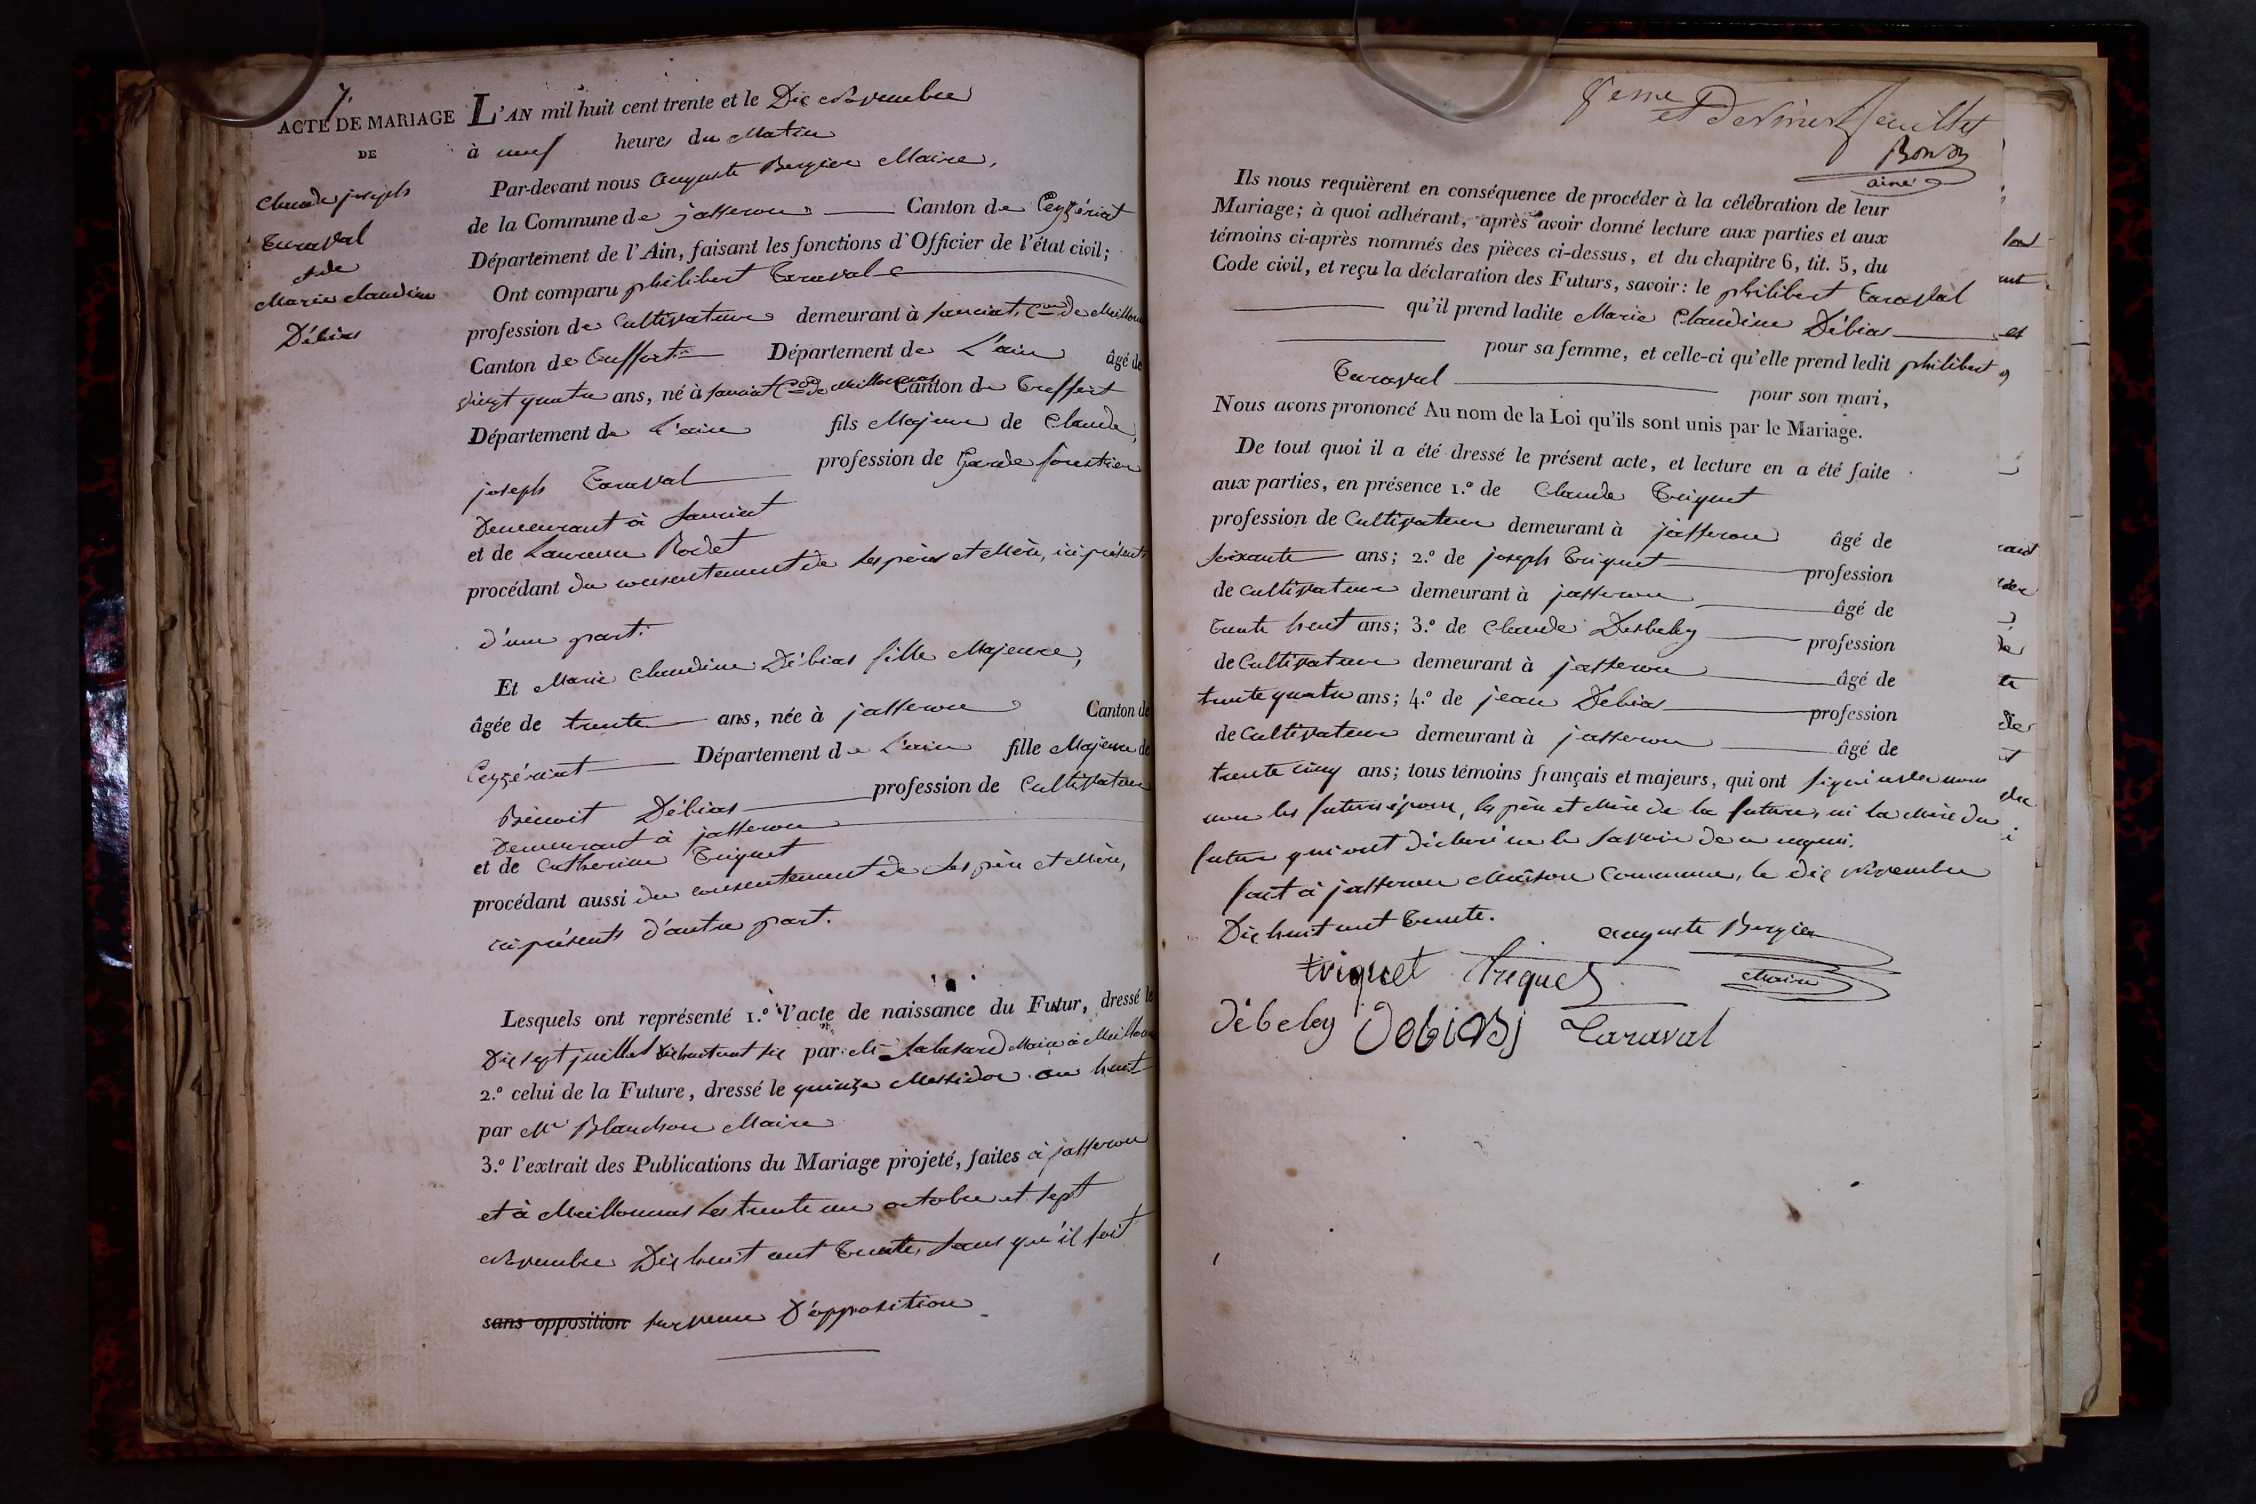 7.
ACTE DE MARIAGE
DE
Claude joseph
Taraval
et de
Marie Claudine
Débias
L'AN mil huit cent trente et le Dix Novembre
à neuf heures du Matin
Par-devant nous Auguste Bergier Maire,
de la Commune de jasseron Canton de Ceyzériat
Département de l'Ain, faisant les fonctions d'Officier de l'état civil;
Ont comparu philibert Taraval
profession de Cultivateur demeurant à Sanciat, Cne de Meillonnas
Canton de Treffort Département de L'ain âgé de
vingt quatre ans, né à Sanciat Cne de Meillonnas Canton de Treffort
Département de L'ain fils Majeur de Claude,
joseph Taraval profession de Garde forestier
Demeurant à Sanciat
et de Laurence Rodet
procédant du consentement de ses père et Mère, ici présents
d'une part.
Et Marie Claudine Débias fille Majeure,
âgée de trente ans, née à jasseron Canton de
Ceyzériat Département de L'ain fille Majeure de
Benoit Débias profession de Cultivateur
Demeurant à jasseron
et de Catherine Triquet
procédant aussi du consentement de ses père et Mère,
ici présents d'autre part.
Lesquels ont représenté 1.º l'acte de naissance du Futur, dressé le
Dix sept juillet Dix huit cent six par Mr Maire à Meillonnas
2.º celui de la Future, dressé le quinze Messidor an huit
par Mr Blanchon Maire
3.º l'extrait des Publications du Mariage projeté, faites à jasseron
et à Meillonnas les trente un octobre et sept
Novembre Dix huit cent Trente, sans qu'il soit
sans opposition survenu D'opposition
8eme et Dernier feuillet
Bondon
ainé
Ils nous requièrent en conséquence de procéder à la célébration de leur
Mariage; à quoi adhérant, après avoir donné lecture aux parties et aux
témoins ci-après nommés des pièces ci-dessus, et du chapitre 6, tit. 5, du
Code civil, et reçu la déclaration des Futurs, savoir: le philibert Taraval
qu'il prend ladite Marie Claudine Débias
pour sa femme, et celle-ci qu'elle prend ledit philibert
Taraval pour son mari,
Nous avons prononcé Au nom de la Loi qu'ils sont unis par le Mariage.
De tout quoi il a été dressé le présent acte, et lecture en a été faite
aux parties, en présence 1.º de Claude Triquet
profession de Cultivateur demeurant à jasseron âgé de
Soixante ans; 2.º de joseph Triquet profession
de cultivateur demeurant à jasseron âgé de
Trente huit ans; 3.º de Claude Desbeley profession
de Cultivateur demeurant à jasseron âgé de
trente quatre ans; 4.º de jean Débias profession
de Cultivateur demeurant à jasseron âgé de
trente cinq ans; tous témoins français et majeurs, qui ont signé avec nous
non les futurs époux, les père et Mère de la future, ni la Mère du
futur qui ont déclaré ne le savoir de ce requis.
fait à jasseron Maison Commune, le Dix Novembre
Dix huit cent Trente.
Auguste Bergier
Maire
triquet triquet
Débeley Debias j Taraval